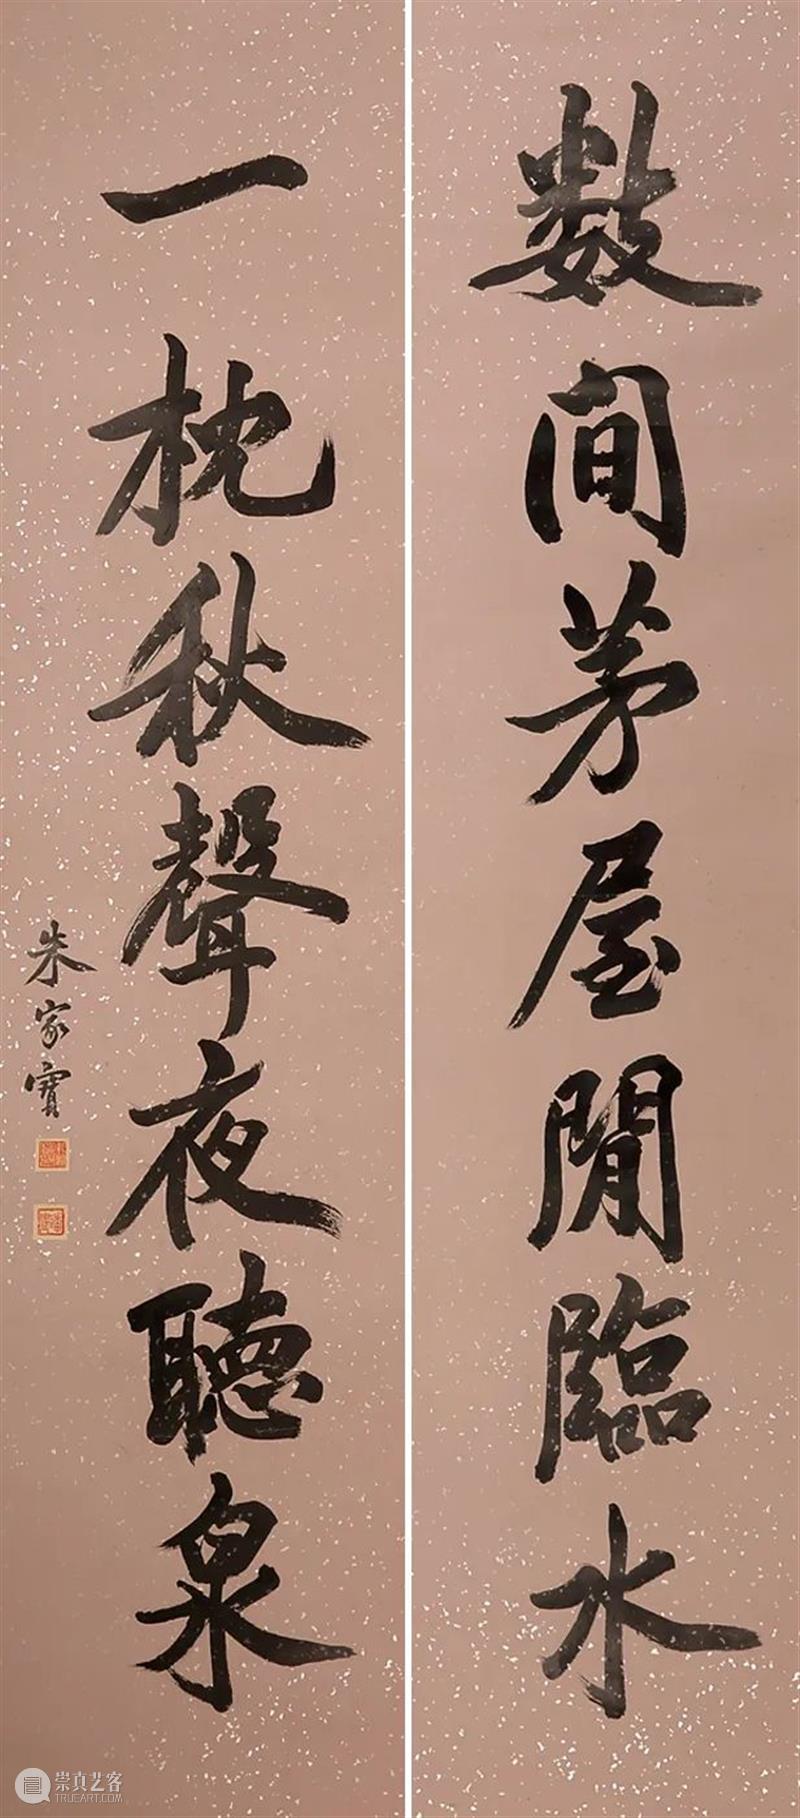 數間茅屋閒臨水
一枕秋聲夜聽泉
朱家寶
崇真艺客
TRUEART.COM